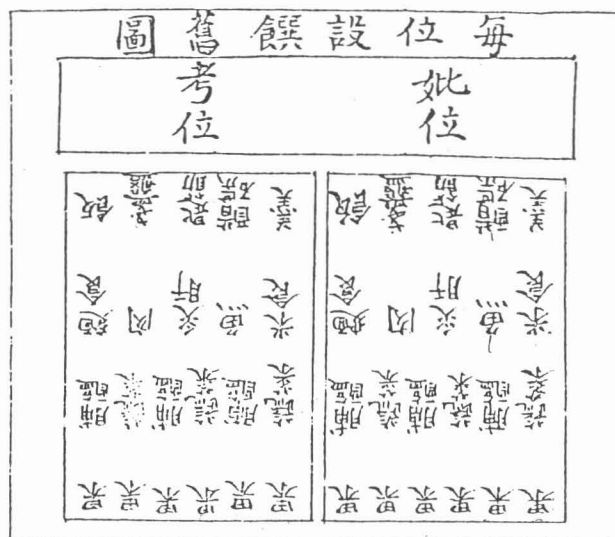 每位設饌舊圖
妣位
考位
羹 醋楪 匙筯 盞盤 飯
米食 魚 炙肝 肉 麵食
蔬菜 脯醢 蔬菜 脯醢 蔬菜 脯醢
果 果 果 果 果 果
羹 醋楪 匙筯 盞盤 飯
米食 魚 炙肝 肉 麵食
蔬菜 脯醢 蔬菜 脯醢 蔬菜 脯醢
果 果 果 果 果 果